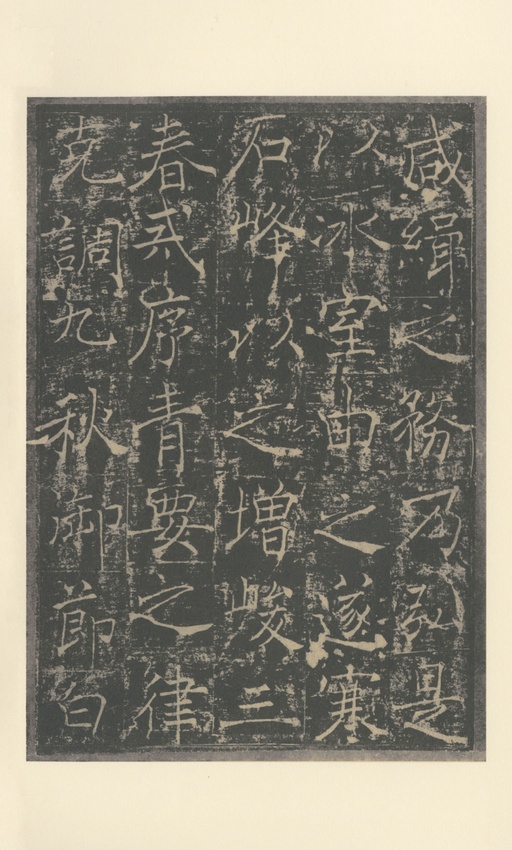 咸緝之務乃弘是
以冰室由之邃寒
石峰以之增峻三
春序青要之律
克調九秋御節白